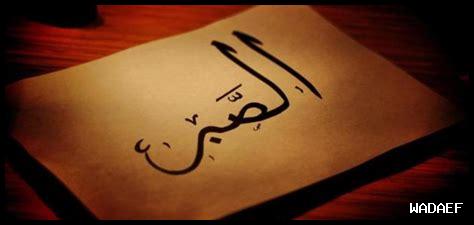 الصَّبر
WADAEF